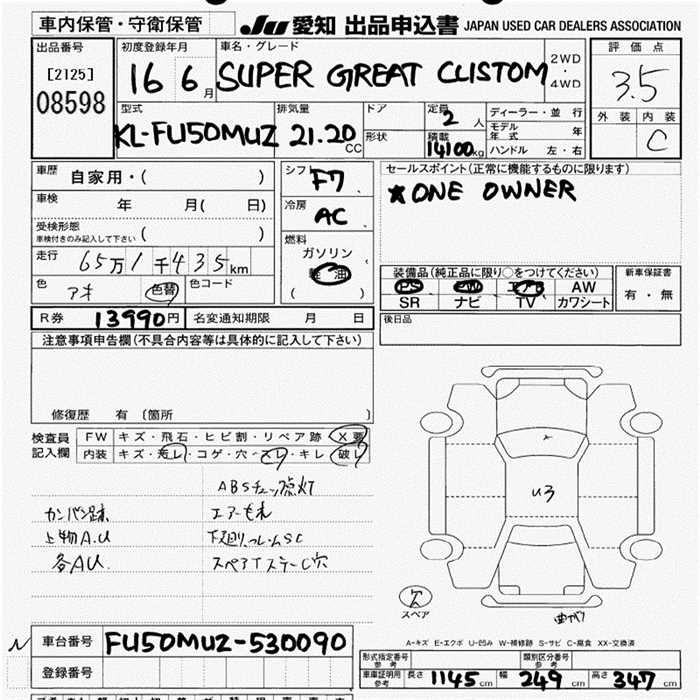 車内保管・守衛保管 JU 愛知 出品申込書 JAPAN USED CAR DEALERS ASSOCIATION
出品番号 初度登録年月 車名・グレード 評価点
[2125] 16 6月 SUPER GREAT CUSTOM 2WD・4WD 3.5
08598
型式 排気量 ドア 定員 2人 ディーラー・並行 外装 内装
KL-FU50MUZ 21.20 CC 形状 積載 14100kg モデル年式 年 C
ハンドル 左・右
車歴 自家用・( ) シフト F7 セールスポイント(正常に機能するものに限ります)
車検 年 月( 日) 冷房 AC ★ONE OWNER
受検形態 ( )
車検付きのみ記入して下さい
走行 65万1千435km 燃料 ガソリン 軽油 ( )
色 アオ 色替 色コード
装備品(純正品に限り○をつけてください) 新車保証書
PS PW エアB AW 有・無
SR ナビ TV カワシート
R券 13990円 名変通知期限 月 日 後日品
注意事項申告欄(不具合内容等は具体的に記入して下さい)
修復歴 有〔箇所 〕
検査員 FW キズ・飛石・ヒビ割・リペア跡・X要
記入欄 内装 キズ・汚レ・コゲ・穴・スレ・キレ・破レ
ABSチェック点灯
カンバン跡 エアーもれ
上物A.U 下廻りフレームSC
各AU スペアTステーC穴
U3
欠
スペア 曲がり
A-キズ E-エクボ U-凹み W-補修跡 S-サビ C-腐食 XX-交換済
N 車台番号 FU50MUZ-530090
登録番号
形式指定番号 参考 類別区分番号 参考
車庫証明用 参考 長さ 1145cm 幅 249cm 高さ 347cm